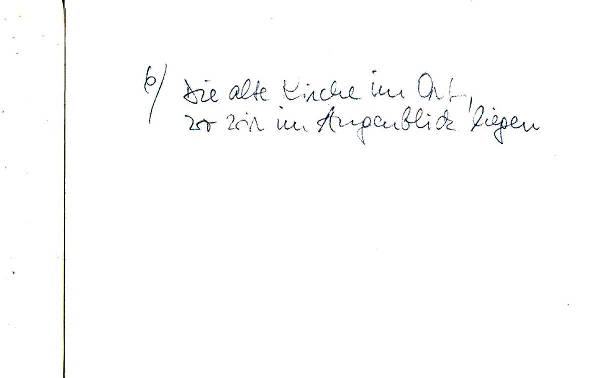 6/ Die alte Kirche im Ort,
wo wir im Augenblick liegen